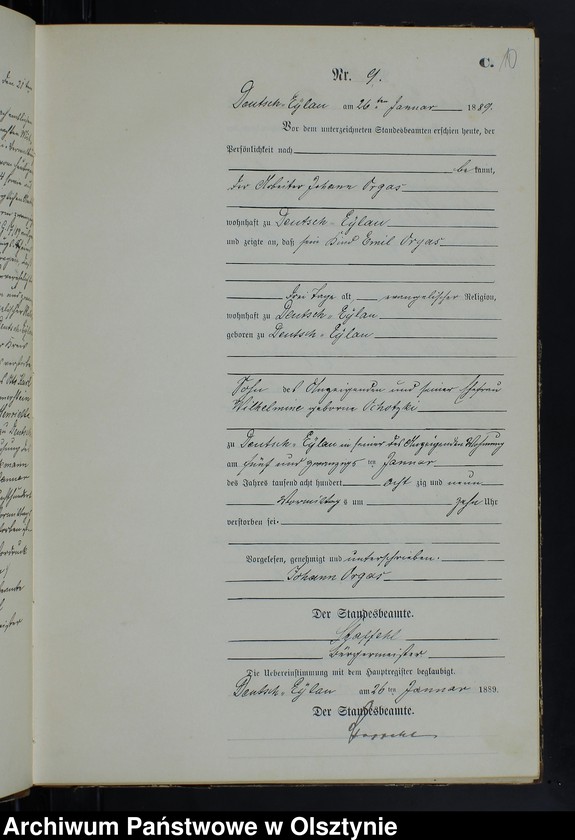 C. 10
Nr. 9.
Deutsch-Eylau am 26ten Januar 1889.
Vor dem unterzeichneten Standesbeamten erschien heute, der
Persönlichkeit nach
bekannt,
der Arbeiter Johann Orgas
wohnhaft zu Deutsch-Eylau
und zeigte an, daß sein Kind Emil Orgas
drei Tage alt, evangelischer Religion,
wohnhaft zu Deutsch-Eylau
geboren zu Deutsch-Eylau
Sohn des Anzeigenden und seiner Ehefrau
Wilhelmine geborne
zu Deutsch-Eylau in seiner des Anzeigenden Wohnung
am fünf und zwanzigsten Januar
des Jahres tausend acht hundert acht zig und neun
Vormittags um zehn Uhr
verstorben sei.
Vorgelesen, genehmigt und unterschrieben.
Johann Orgas
Der Standesbeamte.
Bürgermeister
Die Uebereinstimmung mit dem Hauptregister beglaubigt.
Deutsch-Eylau am 26ten Januar 1889.
Der Standesbeamte.
Archiwum Państwowe w Olsztynie